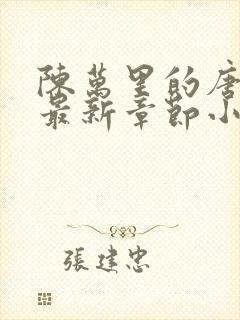 陳萬里的唐
最新章節小
張建忠